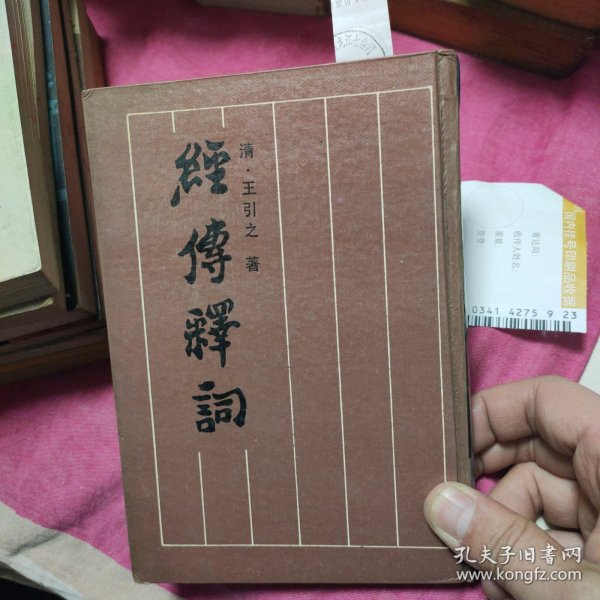 經傳釋詞
清·王引之 著
国内挂号印刷品收据
寄达局:
收件人姓名:
重量:
资费:
0341 4275 9 23
孔夫子旧书网
www.kongfz.com